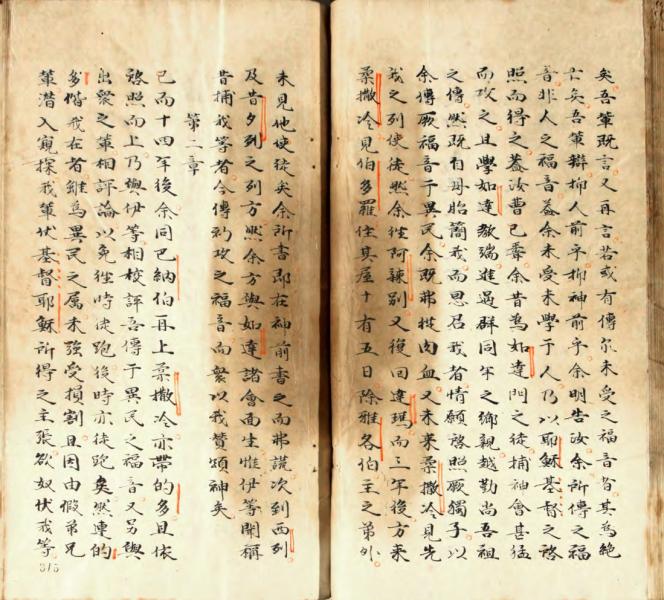 矣吾輩既言之又再言若或有傳尔未受之福音者其為絶
亡矣吾輩辯抑人前乎抑神前乎余明告汝余所傳之福
音非人之福音蓋余未受未學于人乃以耶穌基督之啓
照而得之蓋汝曹已聞余昔為如達門之徒捕神會甚猛
而攻之且學如達教瑞進過群同年之鄉親越勤尚吾祖
之傳然既自母胎簡我而思召我者情願啓照厥獨子以
余傳厥福音于異民余既弗從肉血又未来柔撒冷見先
我之列使徒然余徃阿辣別又後回達瑪而三年後方来
柔撒冷見伯多羅住其屋十有五日除雅各伯主之弟外
未見他使徒矣余所書即在神前書之而弗謊次到西列
及昔夕列之列方然余方與如達諸會面生惟伊等聞稱
昔捕我等者今傳所攻之福音而衆以我賛頌神矣
第二章
已而十四年後余同巴納伯再上柔撒冷亦帶的多且依
啓照而上乃與伊等相校評吾傳于異民之福音又另與
出衆之輩相評論以免徃時徒跑後時亦徒跑矣然連的
多偕我在者雖為異民之属未強受損割且因由假弟兄
輩潜入窺探我輩伏基督耶穌所得之主張欲奴伏我等
315